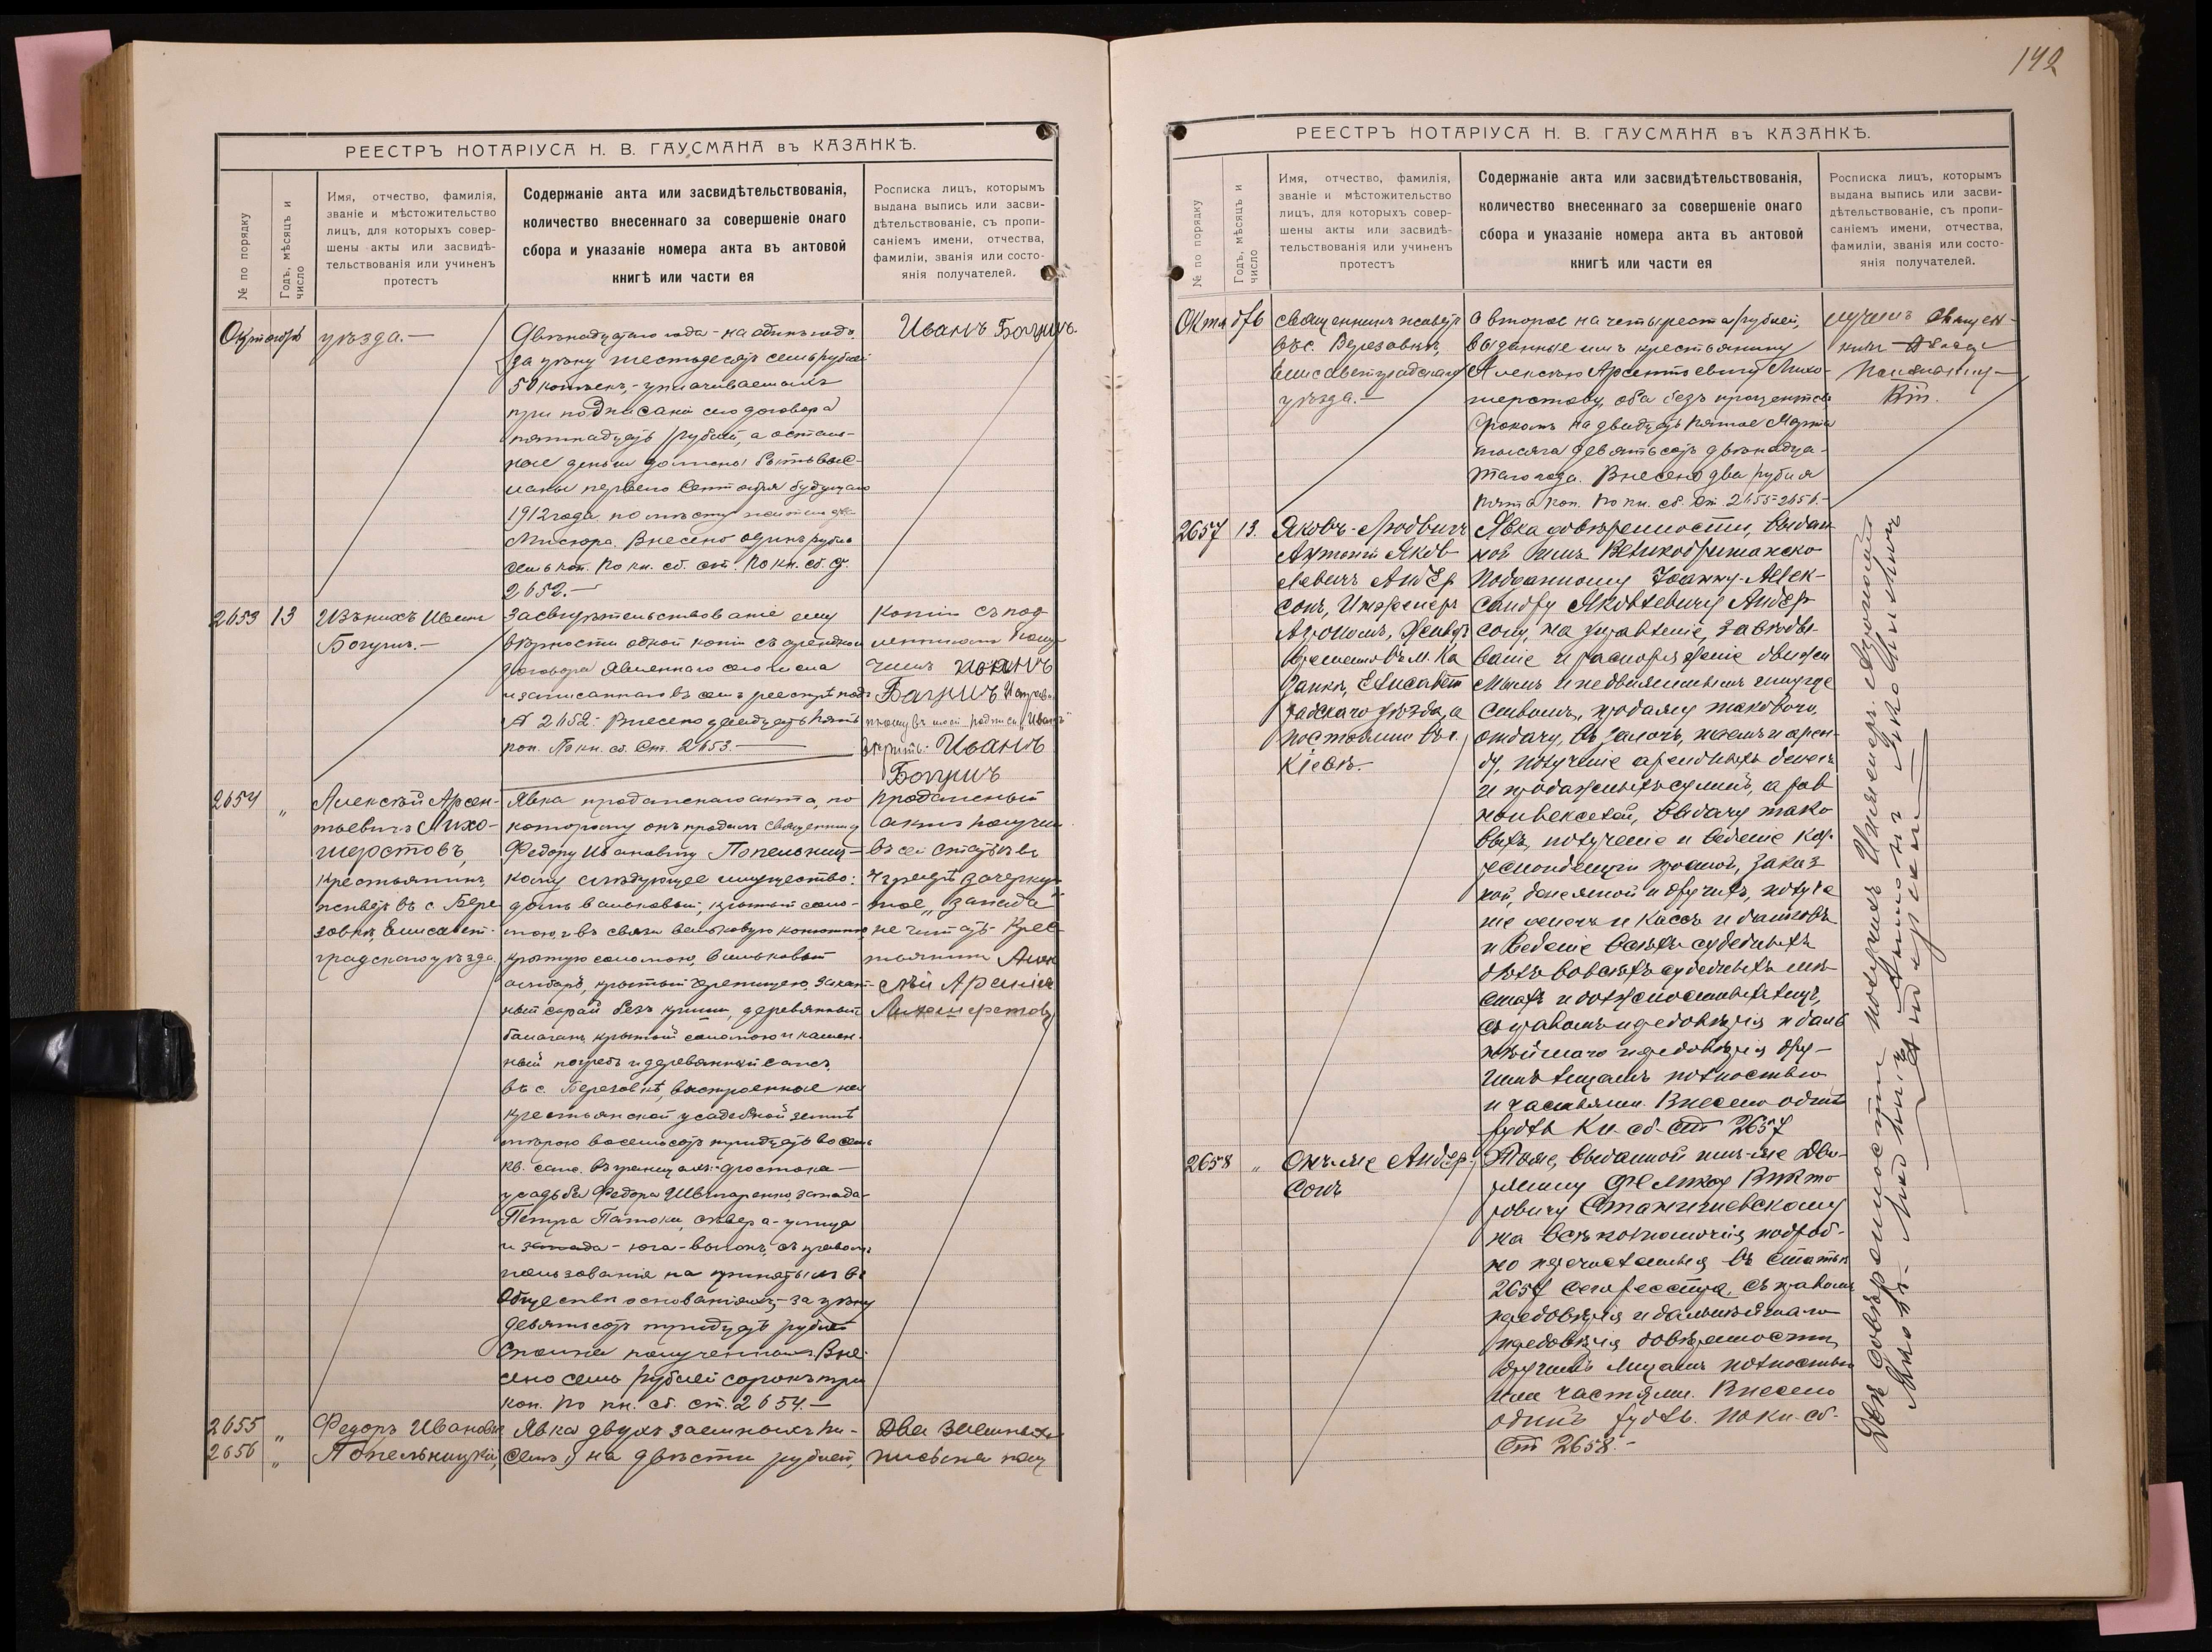 РЕЕСТРЪ НОТАРІУСА Н. В. ГАУСМАНА въ КАЗАНКѢ.
№ по порядку
Годъ, мѣсяцъ и
число
Имя, отчество, фамилія,
званіе и мѣстожительство
лицъ, для которыхъ совер-
шены акты или засвидѣ-
тельствованія или учиненъ
протестъ
Содержаніе акта или засвидѣтельствованія,
количество внесеннаго за совершеніе онаго
сбора и указаніе номера акта въ актовой
книгѣ или части ея
Росписка лицъ, которымъ
выдана выпись или засви-
дѣтельствованіе, съ пропи-
саніемъ имени, отчества,
фамиліи, званія или состо-
янія получателей.
Октября
уѣзда.—
Двѣнадцатаго года - на одинъ годъ
за цѣну шестьдесятъ семь рублей
50 копѣекъ,
при подписаніи сего договора
пятнадцать рублей, а осталь-
ные деньги должны быть
перваго Сентября будущаго
1912 года по мѣсту
Внесено одинъ рубль
семь коп. По кн. сб. ст. По кн. сб. ст.
2652.—
Иванъ Богринъ.
2653
13
Изъ нихъ Иванъ
Богринъ.—
Засвидѣтельствованіе ему
вѣрности одной копіи съ аренднаго
договора явленнаго сего числа
и записаннаго въ семъ реестрѣ подъ
№ 2652.- Внесено двадцать пять
коп. По кн. сб. Ст. 2653.—
Копію съ под-
линникомъ полу-
чилъ
Богринъ
подписи „Иванъ"
Иванъ
Богринъ
2654
„
Алексѣй Арсен-
тьевичъ Лихо-
шерстовъ,
крестьянинъ,
живетъ въ с. Бере-
зовкѣ, Елисавет-
градскаго уѣзда
Явка продажнаго акта, по
которому онъ продалъ священнику
Федору Ивановичу Попельниц-
кому слѣдующее имущество:
домъ вальковый, крытый соло-
мою, и въ связи вальковую конюшню,
крытую соломою, вальковый
амбаръ, крытый черепицею,
сарай безъ крыши, деревянный
балаганъ, крытый соломою и камен-
ный погребъ и деревянный
въ с. Березовкѣ, выстроенные на
крестьянской усадебной землѣ
мѣрою восемьсотъ тридцать восемь
кв. саж. въ границахъ: востока —
усадьба Федора Швындаренко, запада-
Петра Патоки, сѣвера - улица
и запада - юга - выгонъ, съ правомъ
пользованія на принятыхъ въ
Обществѣ основаніяхъ,- за цѣну
девятьсотъ тридцать рублей
сполна полученныхъ. Вне-
сено семь рублей сорокъ три
коп. По кн. сб. ст. 2654.—
Продажный
актъ получилъ
въ сей статьѣ въ
зачеркну-
тое „запада"
не читать - Крес-
тьянинъ Алек-
сѣй Арсенiев
Лихошерстовъ
2655
2656
„
„
Федоръ Ивановичъ
Попельницкій,
Явка двухъ заемныхъ пи-
семъ 1) на двѣсти рублей,
Два заемныхъ
письма полу
142
РЕЕСТРЪ НОТАРІУСА Н. В. ГАУСМАНА въ КАЗАНКѢ.
№ по порядку
Годъ, мѣсяцъ и
число
Имя, отчество, фамилія,
званіе и мѣстожительство
лицъ, для которыхъ совер-
шены акты или засвидѣ-
тельствованія или учиненъ
протестъ
Содержаніе акта или засвидѣтельствованія,
количество внесеннаго за совершеніе онаго
сбора и указаніе номера акта въ актовой
книгѣ или части ея
Росписка лицъ, которымъ
выдана выпись или засви-
дѣтельствованіе, съ пропи-
саніемъ имени, отчества,
фамиліи, званія или состо-
янія получателей.
Октябрь
священникъ живетъ
въ с. Березовкѣ,
Елисаветградскаго
уѣзда.—
а второе на четыреста рублей,
выданные имъ крестьянину
Алексѣю Арсентьевичу Лихо-
шерстову, оба безъ процентовъ
срокомъ на двадцать пятое Марта
тысяча девятьсотъ двѣнадца-
таго года. Внесено два рубля
коп. По кн. сб. Ст. 2655-2656.—
лучилъ Священ-
никъ
2657
13.
Яковъ-Людвигъ
Антоній Яков-
левичъ Андер-
сонъ, Инженеръ
Агрономъ, живетъ
временно въ м. Ка-
занкѣ, Елисавет-
градскаго уѣзда, а
постоянно въ г.
Кіевѣ.
Явка довѣренности, выдан-
ной имъ Великобританско-
подданному Іоанну-Алек-
сандру Яковлевичу Андер-
сону, на управленіе, завѣды-
ваніе и распоряженіе движи-
мымъ и недвижимымъ имуще-
ствомъ, продажу таковаго,
отдачу, въ залогъ, наемъ и арен-
ду, полученіе арендныхъ денегъ
и продажныхъ суммъ, а рав-
но векселей, выдачу тако-
выхъ, полученіе и веденіе кор-
респонденціи простой, заказ-
ной, денежной и другихъ, получе-
ніе денегъ и кассъ и банковъ
и веденіе всѣхъ судебныхъ
дѣлъ во всѣхъ судебныхъ мѣ-
стахъ и должностныхъ лицъ,
съ правомъ передовѣрія и даль-
нѣйшаго передовѣрія дру-
гимъ лицамъ полностью
и частями. Внесено одинъ
рубль Кн. сб. Ст 2657
2658
„
Онъ-же Андер-
сонъ
Тоже, выданной имъ-же Дво-
рянину Феликсу Викто-
ровичу
на всѣ полномочія подроб-
но перечисленныя въ статьѣ
2657 сего реестра, съ правомъ
передовѣрія и дальнѣйшаго
передовѣрія довѣренности
другимъ лицамъ полностью
или частями. Внесено
одинъ рубль. По кн. сб.
Ст 2658.—
Двѣ довѣренности получилъ Инженеръ-Агрономъ
Яковъ-Людвигъ Антоній Яковлевичъ
Андерсонъ